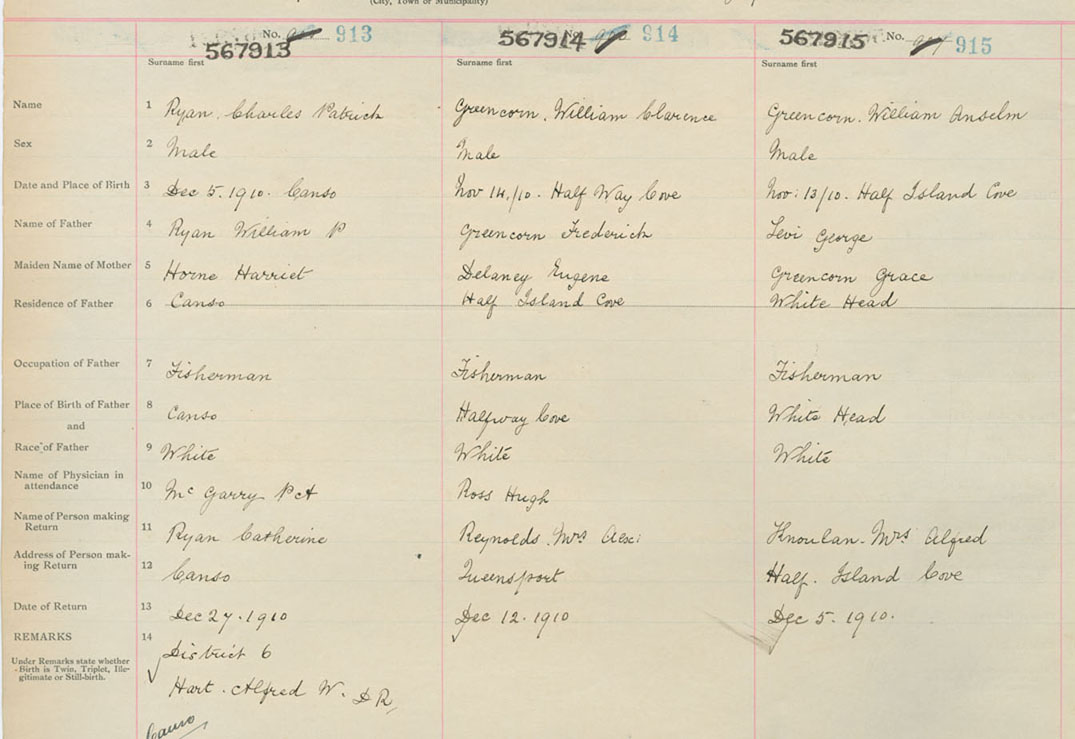 (City, Town or Municipality)
No. 913 No. 914 No. 915
567913 567914 567915
Surname first Surname first Surname first
Name 1 Ryan. Charles Patrick Greencorn. William Clarence Greencorn. William Anselm
Sex 2 Male Male Male
Date and Place of Birth 3 Dec 5. 1910. Canso Nov 14/10. Half Way Cove Nov: 13/10. Half Island Cove
Name of Father 4 Ryan William P Greencorn Frederick Levi George
Maiden Name of Mother 5 Horne Harriet Delaney Eugene Greencorn Grace
Residence of Father 6 Canso Half Island Cove White Head
Occupation of Father 7 Fisherman Fisherman Fisherman
Place of Birth of Father 8 Canso Halfway Cove White Head
and
Race of Father 9 White White White
Name of Physician in
attendance 10 Mc Garry P A Ross Hugh
Name of Person making
Return 11 Ryan Catherine Reynolds. Mrs Alex: Mrs Alfred
Address of Person mak-
ing Return 12 Canso Queensport Half. Island Cove
Date of Return 13 Dec 27. 1910 Dec 12. 1910 Dec 5. 1910.
REMARKS 14 District 6
Under Remarks state whether
Birth is Twin, Triplet, Ille-
gitimate or Still-birth.
Hart. Alfred W. D R,
Canso